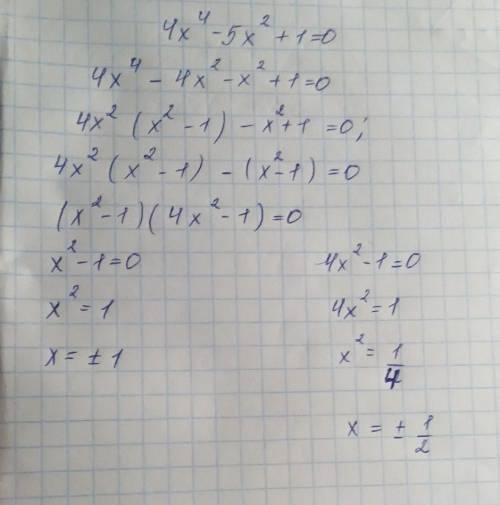 4x⁴ - 5x² + 1 = 0
4x⁴ - 4x² - x² + 1 = 0
4x² (x² - 1) - x² + 1 = 0;
4x² (x² - 1) - (x² - 1) = 0
(x² - 1)(4x² - 1) = 0
x² - 1 = 0
x² = 1
x = ± 1
4x² - 1 = 0
4x² = 1
x² = 1/4
x = ± 1/2